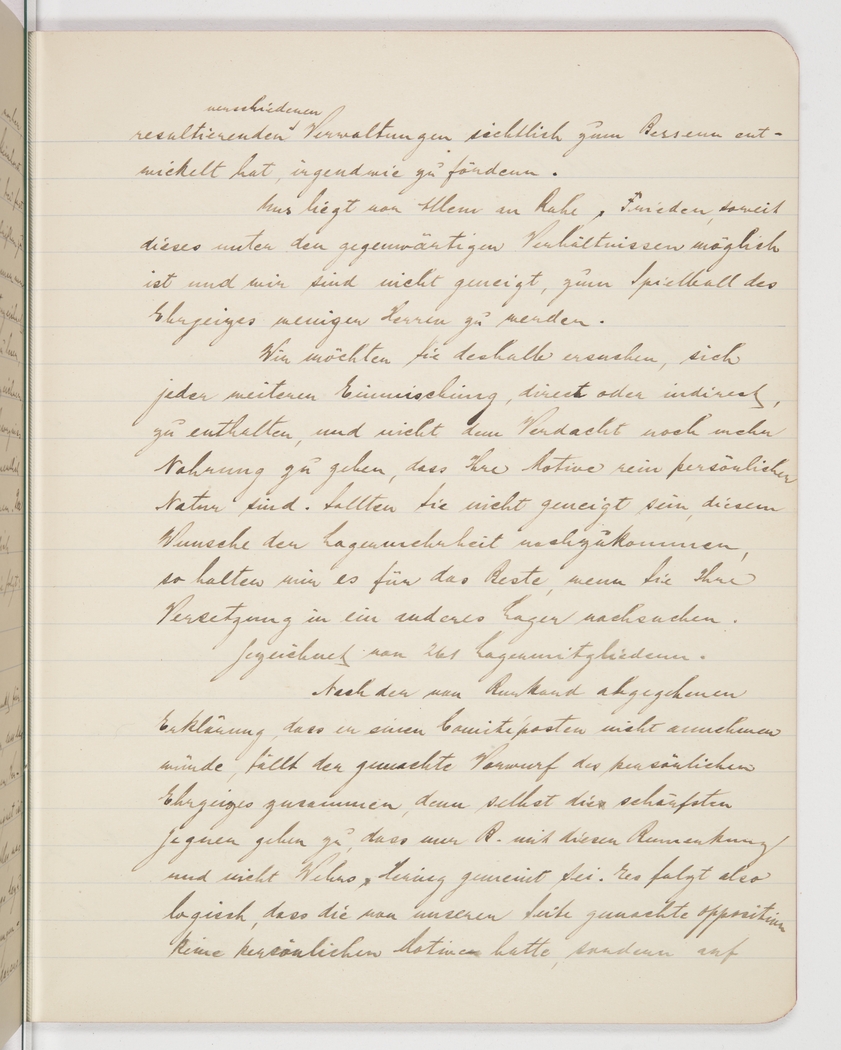 verschiedenen
resultierenden Verwaltungen sichtlich zum Bessern ent-
wickelt hat, irgendwie zu fördern.
Uns liegt vor Allem an Ruhe & Frieden, soweit
dieses unter den gegenwärtigen Verhältnissen möglich
ist und wir sind nicht geneigt, zum Spielball des
Ehrgeizes weniger Herren zu werden.
Wir möchten Sie deshalb ersuchen, sich
jeder weiteren Einmischung, direct oder indirect,
zu enthalten, und nicht dem Verdacht noch mehr
Nahrung zu geben, dass Ihre Motive rein persönlicher
Natur sind. Sollten Sie nicht geneigt sein, diesem
Wunsche der Lagermehrheit nachzukommen,
so halten wir es für das Beste, wenn Sie Ihre
Versetzung in ein anderes Lager nachsuchen.
Gezeichnet von 261 Lagermitgliedern.
Nach der von abgegebenen
Erklärung, dass er einen Comitéposten nicht annehmen
würde, fällt der gemachte Vorwurf des persönlichen
Ehrgeizes zusammen, denn selbst die schärfsten
Gegner geben zu, dass nur R. mit diesen Bemerkung
und nicht Wehrs & gemeint sei. Es folgt also
logisch, dass die von unserer Seite gemachte opposition
keine persönlichen Motive hatte, sondern auf